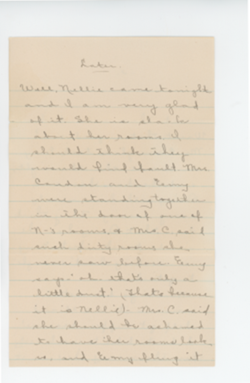 Later.
Well, Nellie came tonight
and I am very glad
of it. She is
about her rooms I
should think they
would find fault. Mrs.
Condon and Emmy
were standing together
in the door of one of
N-'s rooms & Mrs C. said
such dirty rooms she
never saw before. Emmy
says "oh that's only a
little dust" (That's because
it is Nellie). Mrs C. said
she should be ashamed
to have her rooms look
so, and Emmy flung it